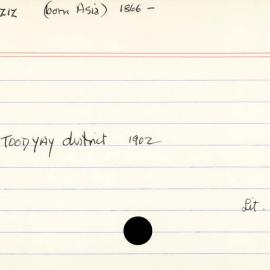 ZIZ (born Asia) 1866 -
TOODYAY district 1902
Lit.